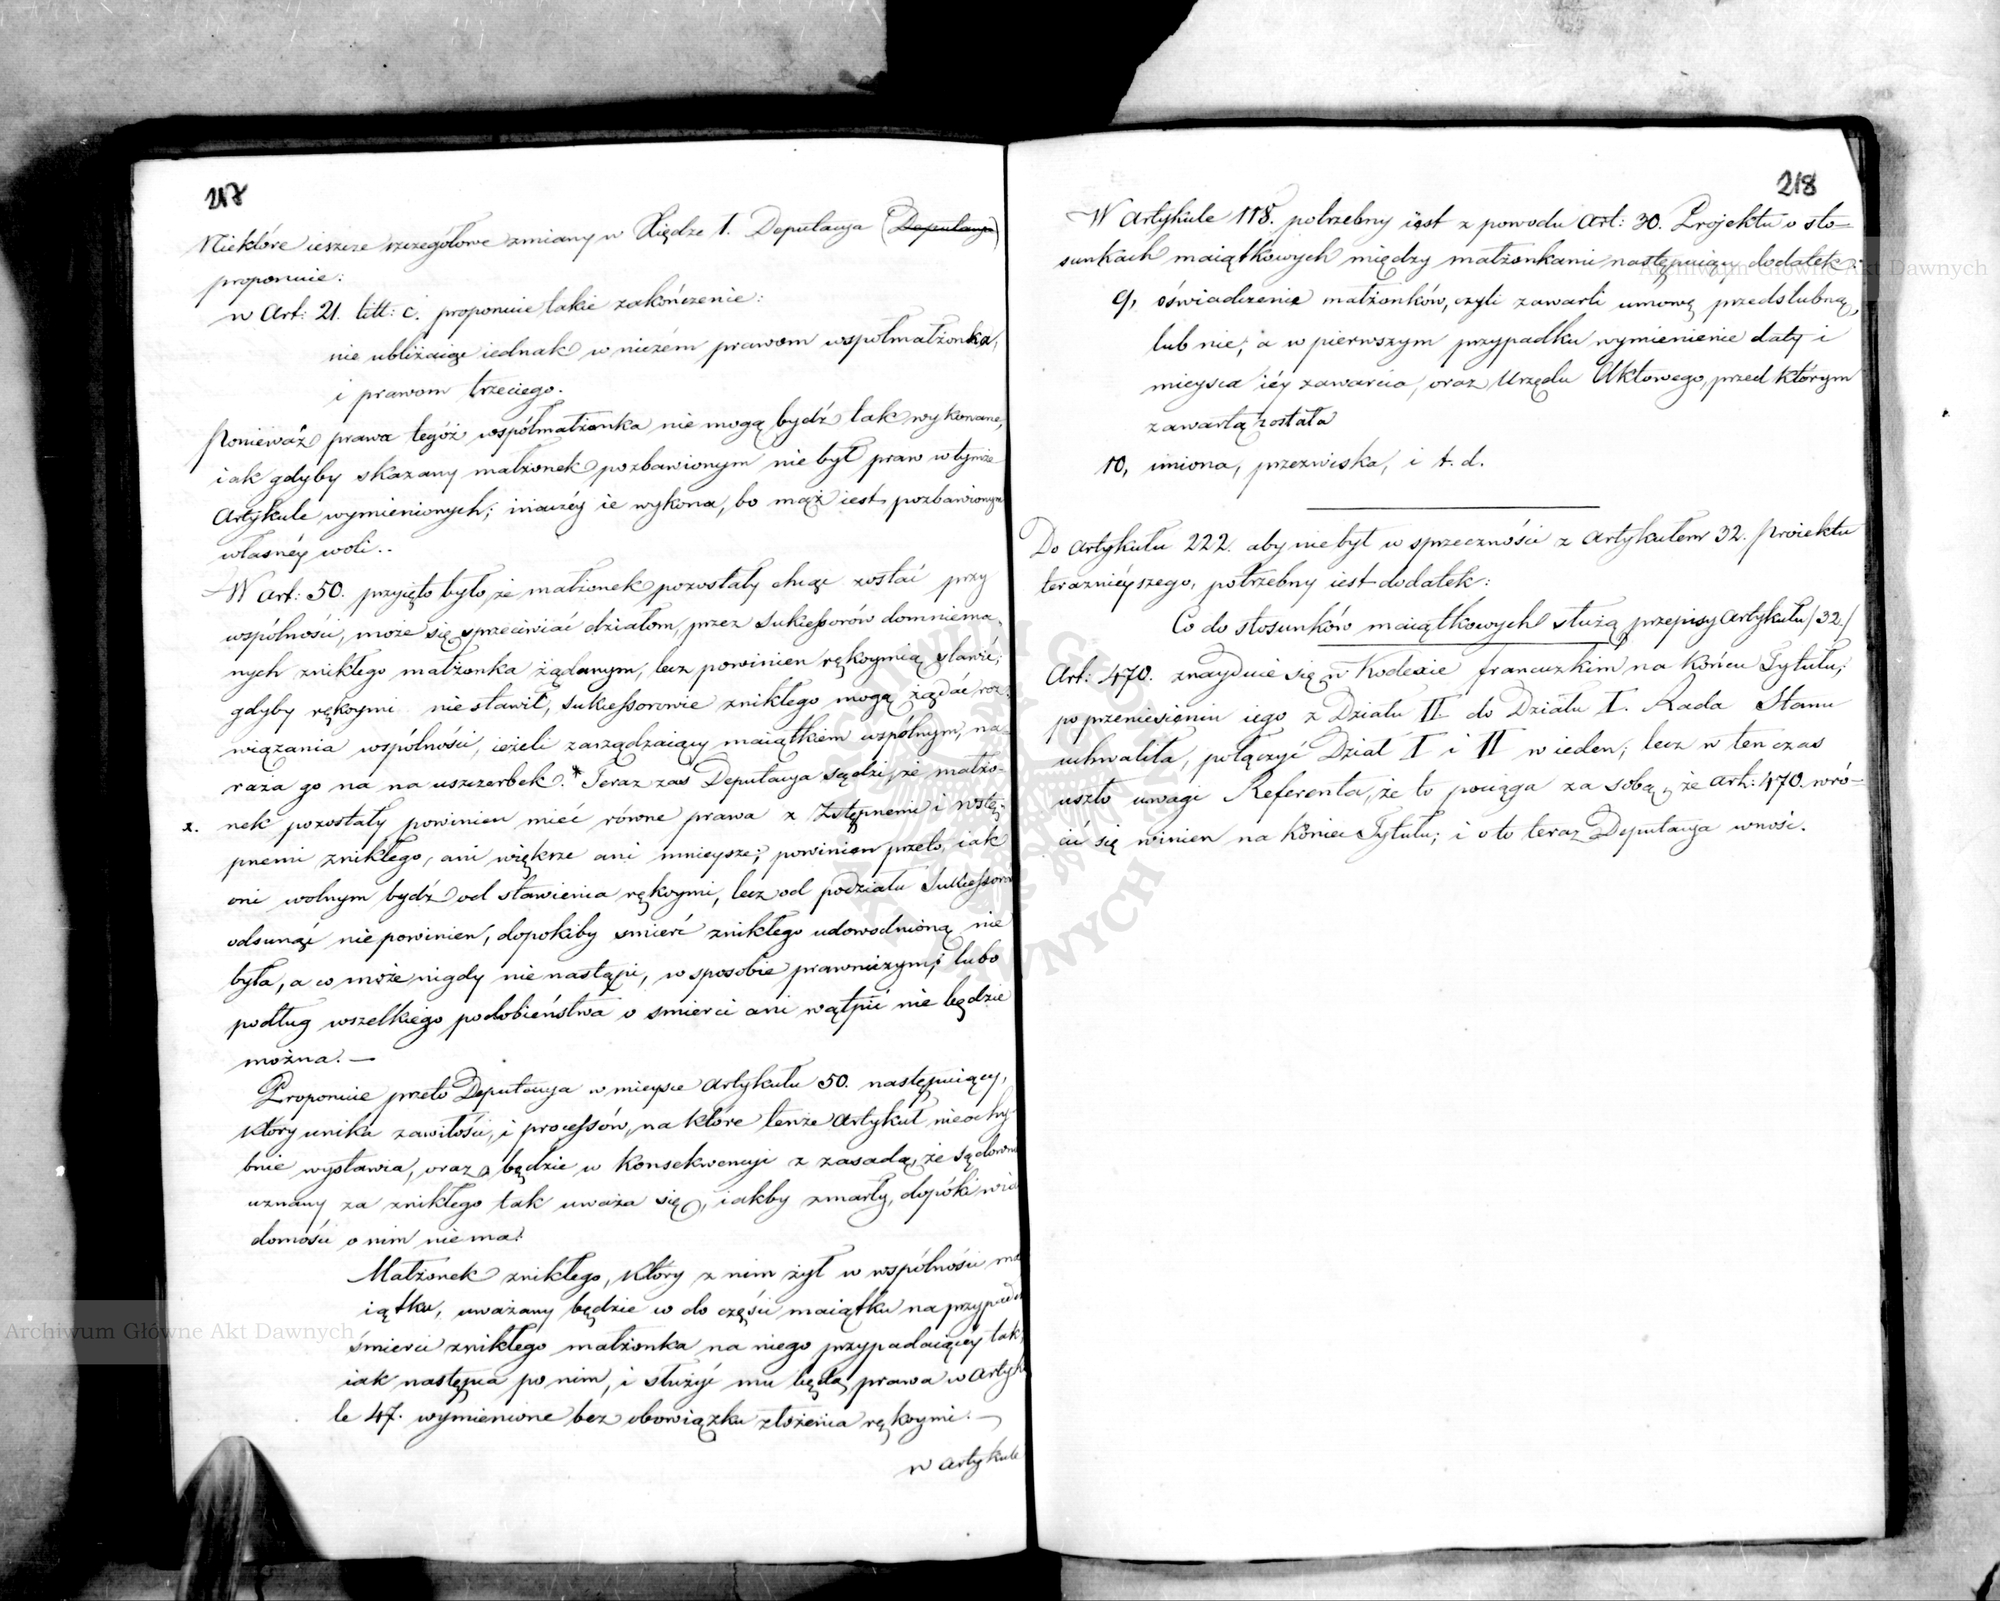 217
Niektóre ieszcze szczegółowe zmiany w Xiędze 1. Deputacya (Deputacya)
proponuie:
w Art: 21. litt: c. proponuie takie zakończenie:
nie ubliżaiąc iednak w niczém prawom współmałżonka,
i prawom trzeciego.
Ponieważ prawa tegóż współmałżonka nie mogą bydź tak wykonane,
iak gdyby skazany małżonek pozbawionym nie był praw w tymże
Artykule wymienionych; inaczéy ie wykona, bo mąż iest pozbawionym
własnéy woli..
W Art: 50. przyięto było, że małżonek pozostały chcąc zostać przy
wspólności, może się sprzeciwiać działom, przez Sukcessorów domniema-
nych znikłego małżonka żądanym, lecz powinien rękoymią stawić;
gdyby rękoymi nie stawił, Sukcessorowie znikłego mogą żądać roz-
wiązania wspólności, ieżeli zarządzaiący maiątkiem wspólnym, na-
raża go na na uszczerbek.* Teraz zas Deputacya sądzi, że małżo-
x. nek pozostały powinien mieć równe prawa z Zstępnemi i wstę-
pnemi znikłego, ani większe ani mnieysze; powinien przeto, iak
oni wolnym bydź od stawienia rękoymi, lecz od podziału Sukcessorów
odsunąć nie powinien, dopokiby smierć znikłego udowodnioną nie
była, a co może nigdy nie nastąpi, w sposobie prawniczym; lubo
podług wszelkiego podobieństwa o smierci ani wątpić nie będzie
można. —
Proponuie przeto Deputacya w mieysce Artykułu 50. następuiący,
który unika zawiłości, i processów, na które tenże Artykuł nieochy-
bnie wystawia, oraz będzie w Konsekwencyi z zasadą, że sądownie
uznany za znikłego tak uważa się, iakby zmarły, dopóki wia
domości o nim nie ma:
Małżonek znikłego, który z nim żył w wspólności ma
iątku, uważany będzie co do części maiątku na przypadek
śmierci znikłego małżonka na niego przypadaiącéy tak,
iak następca po nim, i służyć mu będą prawa w Artyku
le 47. wymienione bez obowiązku złożenia rękoymi. —
w Artykule
218
W Artykule 118. potrzebny iest z powodu Art: 30. Projektu o sto-
sunkach maiątkowych między małżonkami następuiący dodatek:
9, oświadczenie małżonków, czyli zawarli umowę przedslubną,
lub nie; a w pierwszym przypadku wymienienie daty i
mieysca iéy zawarcia, oraz Urzędu Aktowego, przed którym
zawartą została
10, imiona, przezwiska, i t. d.
Do Artykułu 222. aby nie był w sprzeczności z Artykułem 32. Proiektu
teraznieyszego, potrzebny iest dodatek:
Co do stosunków maiątkowych służą przepisy Artykułu /32./
Art: 470. znayduie się w Kodexie francuzkim na końcu Tytułu;
po przeniesieniu iego z Działu II do Działu I. Rada Stanu
uchwaliła, połączyć Dział I i II w ieden; lecz w ten czas
uszło uwagi Referenta, że to pociąga za sobą, że Art: 470. wró-
cić się winien na koniec Tytułu; i o to teraz Deputacya wnosi.
Archiwum Główne Akt Dawnych
Archiwum Główne Akt Dawnych